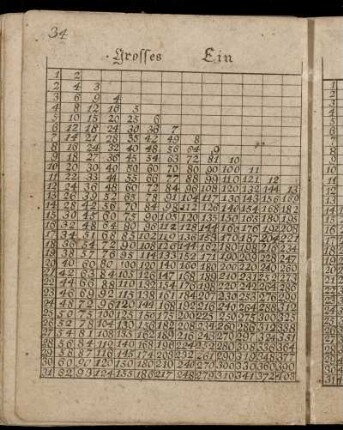 34
Grosses Ein
1 2
2 4 3
3 6 9 4
4 8 12 16 5
5 10 15 20 25 6
6 12 18 24 30 36 7
7 14 21 28 35 42 49 8
8 16 24 32 40 48 56 64 9
9 18 27 36 45 54 63 72 81 10
10 20 30 40 50 60 70 80 90 100 11
11 22 33 44 55 66 77 88 99 110 121 12
12 24 36 48 60 72 84 96 108 120 132 144 13
13 26 39 52 65 78 91 104 117 130 143 156 169
14 28 42 56 70 84 98 112 126 140 154 168 182
15 30 45 60 75 90 105 120 135 150 165 180 195
16 32 48 64 80 96 112 128 144 160 176 192 208
17 34 51 68 85 102 119 136 153 170 187 204 221
18 36 54 72 90 108 126 144 162 180 198 216 234
19 38 57 76 95 114 133 152 171 190 209 228 247
20 40 60 80 100 120 140 160 180 200 220 240 260
21 42 63 84 105 126 147 168 189 210 231 252 273
22 44 66 88 110 132 154 176 198 220 242 264 286
23 46 69 92 115 138 161 184 207 230 253 276 299
24 48 72 96 120 144 168 192 216 240 264 288 312
25 50 75 100 125 150 175 200 225 250 275 300 325
26 52 78 104 130 156 182 208 234 260 286 312 338
27 54 81 108 135 162 189 216 243 270 297 324 351
28 56 84 112 140 168 196 224 252 280 308 336 364
29 58 87 116 145 174 203 232 261 290 319 348 377
30 60 90 120 150 180 210 240 270 300 330 360 390
31 62 93 124 155 186 217 248 279 310 341 372 403